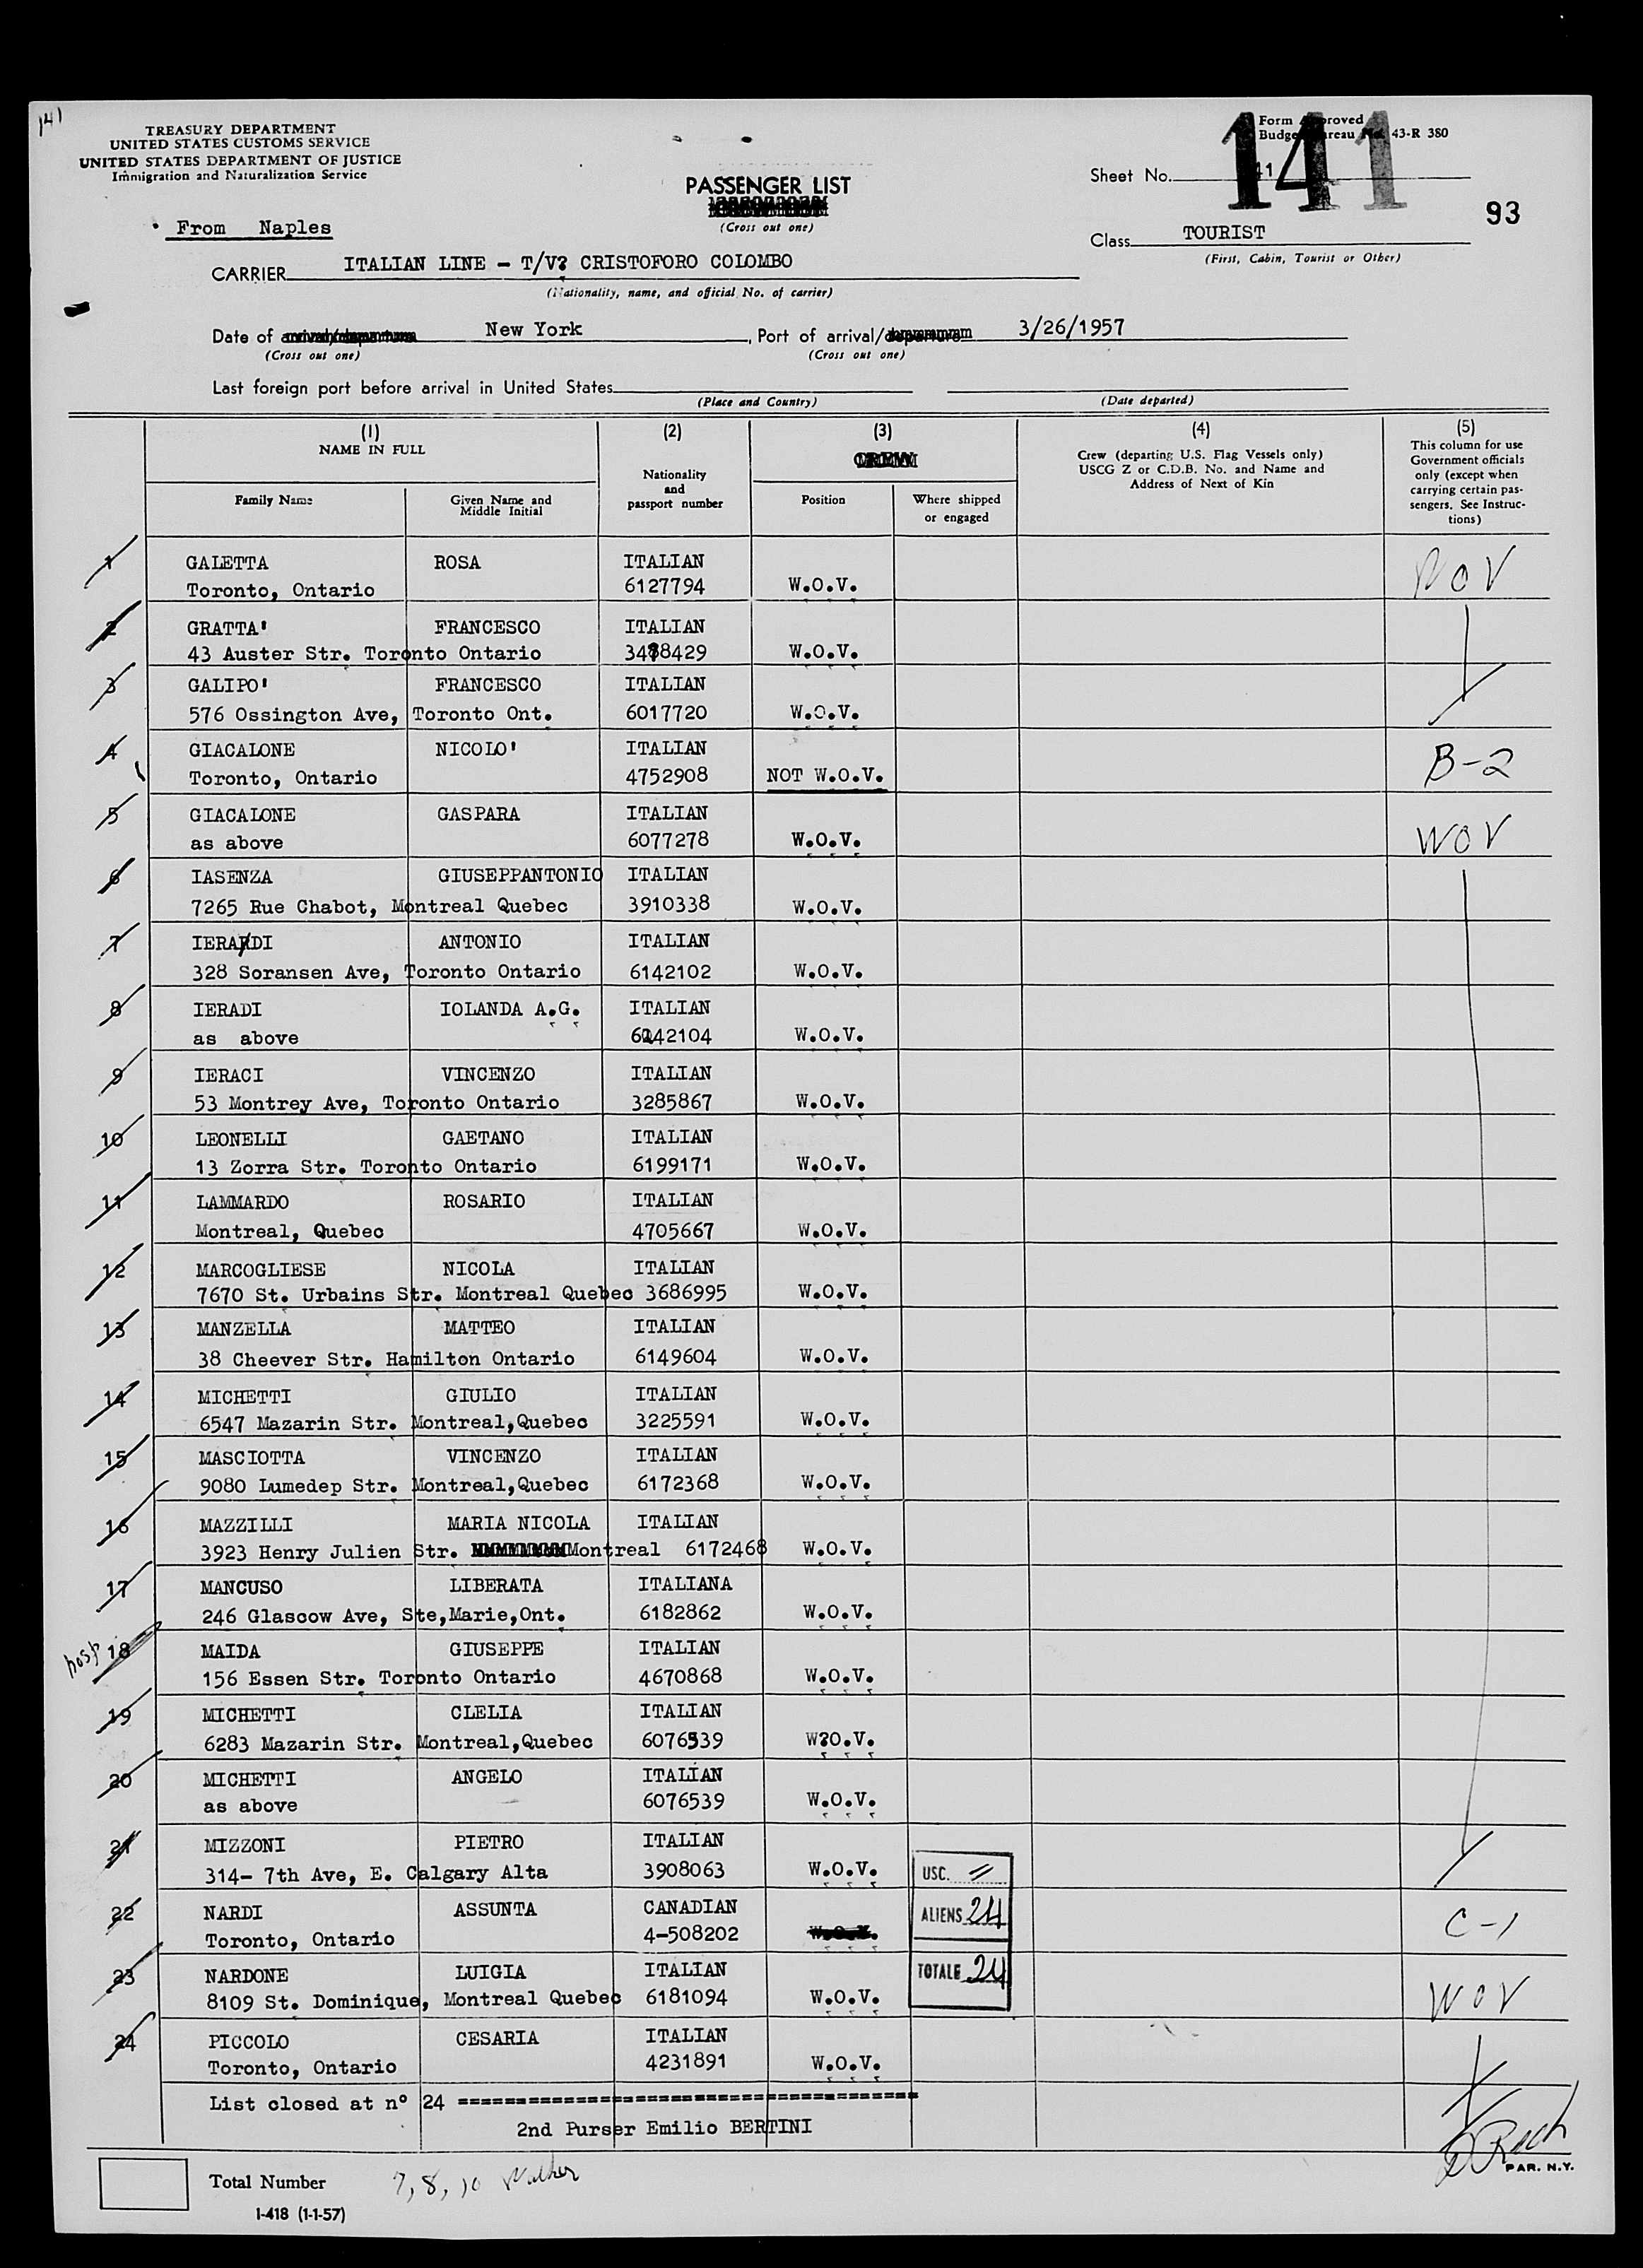 141
TREASURY DEPARTMENT
UNITED STATES CUSTOMS SERVICE
UNITED STATES DEPARTMENT OF JUSTICE
Immigration and Naturalization Service
Form Approved
Budget Bureau No. 43-R 380
141
Sheet No. 41
93
PASSENGER LIST
(Cross out one)
From Naples
Class TOURIST
(First, Cabin, Tourist or Other)
CARRIER ITALIAN LINE - T/V? CRISTOFORO COLOMBO
(Nationality, name, and official No. of carrier)
Date of arrival/departure New York, Port of arrival/departure 3/26/1957
(Cross out one) (Cross out one)
Last foreign port before arrival in United States
(Place and Country) (Date departed)
(1) (2) (3) (4) (5)
NAME IN FULL
Family Name
Given Name and Middle Initial
Nationality and passport number
CREW
Position
Where shipped or engaged
Crew (departing U.S. Flag Vessels only)
USCG Z or C.D.B. No. and Name and
Address of Next of Kin
This column for use
Government officials
only (except when
carrying certain pas-
sengers. See Instruc-
tions)
1 GALETTA ROSA ITALIAN
Toronto, Ontario 6127794 W.O.V. WOV
2 GRATTA' FRANCESCO ITALIAN
43 Auster Str. Toronto Ontario 3488429 W.O.V.
3 GALIPO' FRANCESCO ITALIAN
576 Ossington Ave, Toronto Ont. 6017720 W.O.V.
4 GIACALONE NICOLO' ITALIAN
Toronto, Ontario 4752908 NOT W.O.V. B-2
5 GIACALONE GASPARA ITALIAN
as above 6077278 W.O.V. WOV
6 IASENZA GIUSEPPANTONIO ITALIAN
7265 Rue Chabot, Montreal Quebec 3910338 W.O.V.
7 IERARDI ANTONIO ITALIAN
328 Soransen Ave, Toronto Ontario 6142102 W.O.V.
8 IERADI IOLANDA A.G. ITALIAN
as above 6142104 W.O.V.
9 IERACI VINCENZO ITALIAN
53 Montrey Ave, Toronto Ontario 3285867 W.O.V.
10 LEONELLI GAETANO ITALIAN
13 Zorra Str. Toronto Ontario 6199171 W.O.V.
11 LAMMARDO ROSARIO ITALIAN
Montreal, Quebec 4705667 W.O.V.
12 MARCOGLIESE NICOLA ITALIAN
7670 St. Urbains Str. Montreal Quebec 3686995 W.O.V.
13 MANZELLA MATTEO ITALIAN
38 Cheever Str. Hamilton Ontario 6149604 W.O.V.
14 MICHETTI GIULIO ITALIAN
6547 Mazarin Str. Montreal,Quebec 3225591 W.O.V.
15 MASCIOTTA VINCENZO ITALIAN
9080 Lumedep Str. Montreal,Quebec 6172368 W.O.V.
16 MAZZILLI MARIA NICOLA ITALIAN
3923 Henry Julien Str. Montreal 6172468 W.O.V.
17 MANCUSO LIBERATA ITALIANA
246 Glascow Ave, Ste,Marie,Ont. 6182862 W.O.V.
hosp 18 MAIDA GIUSEPPE ITALIAN
156 Essen Str. Toronto Ontario 4670868 W.O.V.
19 MICHETTI CLELIA ITALIAN
6283 Mazarin Str. Montreal,Quebec 6076539 W?O.V.
20 MICHETTI ANGELO ITALIAN
as above 6076539 W.O.V.
21 MIZZONI PIETRO ITALIAN
314- 7th Ave, E. Calgary Alta 3908063 W.O.V.
USC. //
22 NARDI ASSUNTA CANADIAN
Toronto, Ontario 4-508202 W.O.V. C-1
ALIENS 24
23 NARDONE LUIGIA ITALIAN
8109 St. Dominique, Montreal Quebec 6181094 W.O.V. WOV
TOTALE 24
24 PICCOLO CESARIA ITALIAN
Toronto, Ontario 4231891 W.O.V.
List closed at n° 24 =======================================
2nd Purser Emilio BERTINI
PAR. N.Y.
Total Number
7, 8, 10
I-418 (1-1-57)